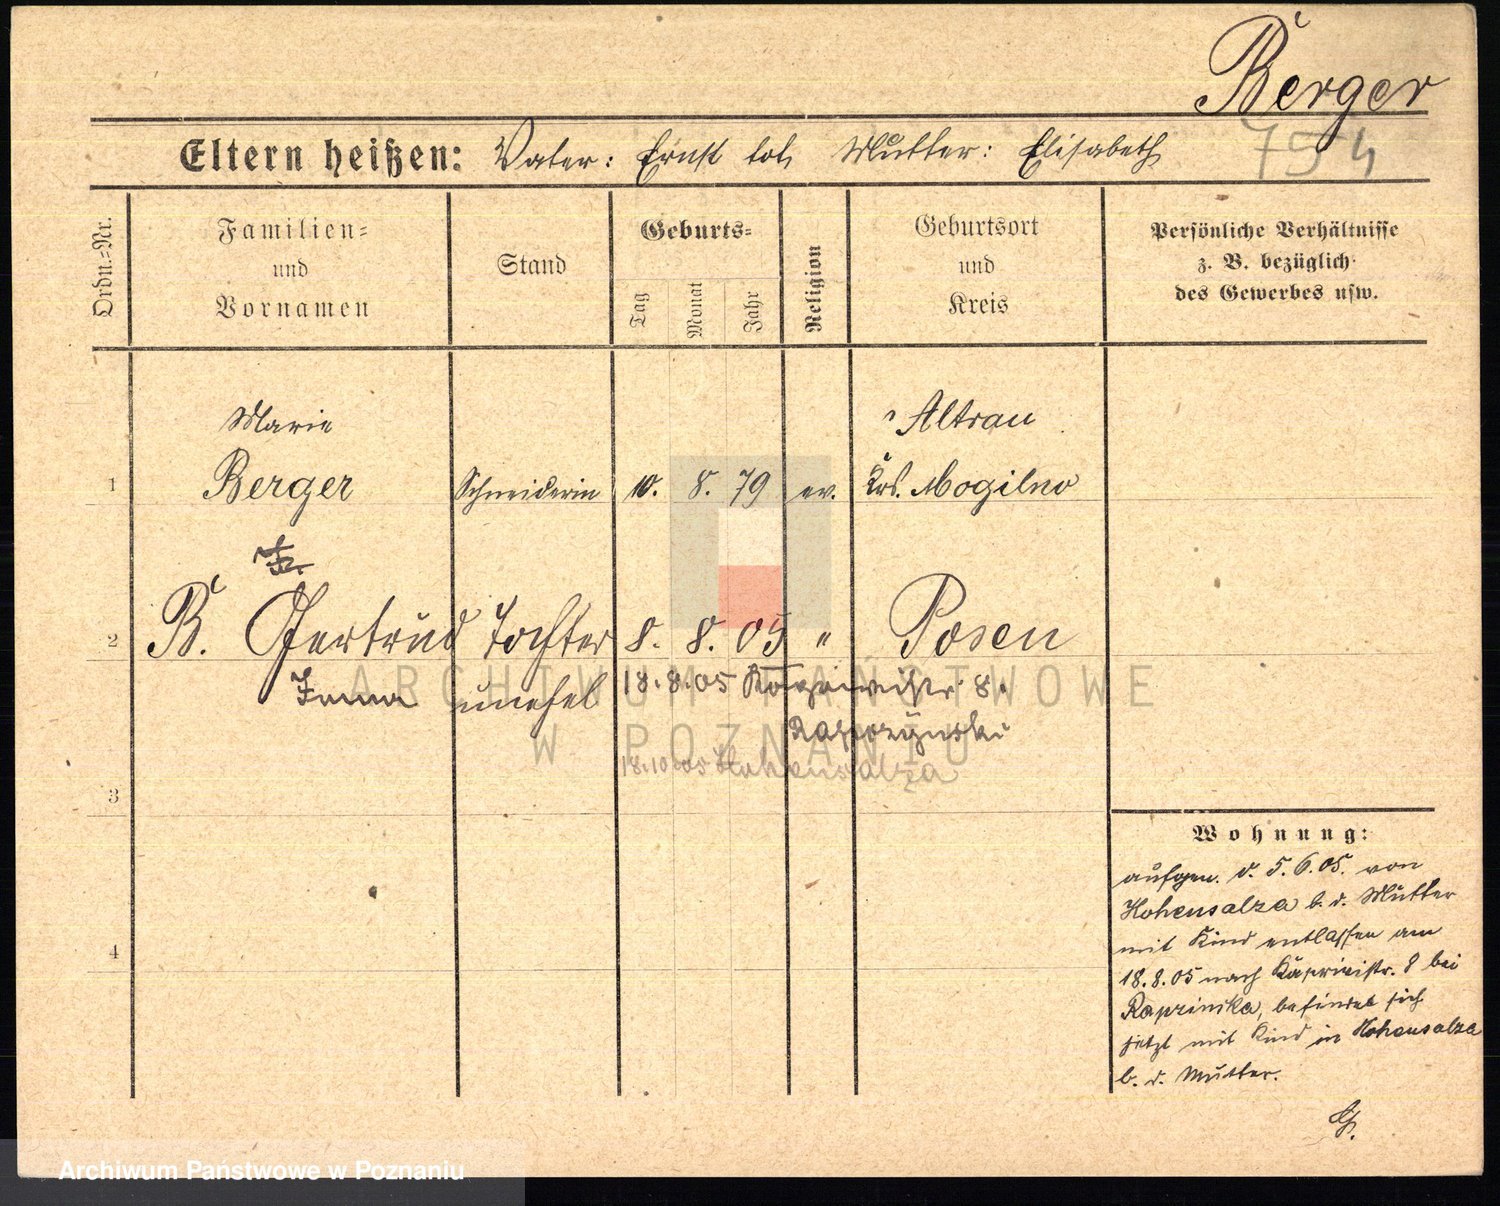 Berger
754
Eltern heißen: Vater: Ernst tot, Mutter: Elisabeth
Ordn.-Nr.
Familien- und Vornamen
Stand
Geburts-
Tag
Monat
Jahr
Religion
Geburtsort und Kreis
Persönliche Verhältnisse
z. B. bezüglich
des Gewerbes usw.
Marie Altrau
1 Berger Schneiderin 10. 8. 79 ev. Krs. Mogilno
2 B. Gertrud Tochter 8. 8. 05 " Posen
Irma unehel 18.8.05 8.
18.10.05 Hohensalza
3
Wohnung:
aufgen. d. 5.6.05. von
Hohensalza b. d. Mutter
mit Kind entlassen am
18.8.05 nach Kaprivistr. 8 bei
Kaprinska, befindet sich
jetzt mit Kind in Hohensalza
b. d. Mutter.
4
ARCHIWUM PAŃSTWOWE
W POZNANIU
Archiwum Państwowe w Poznaniu